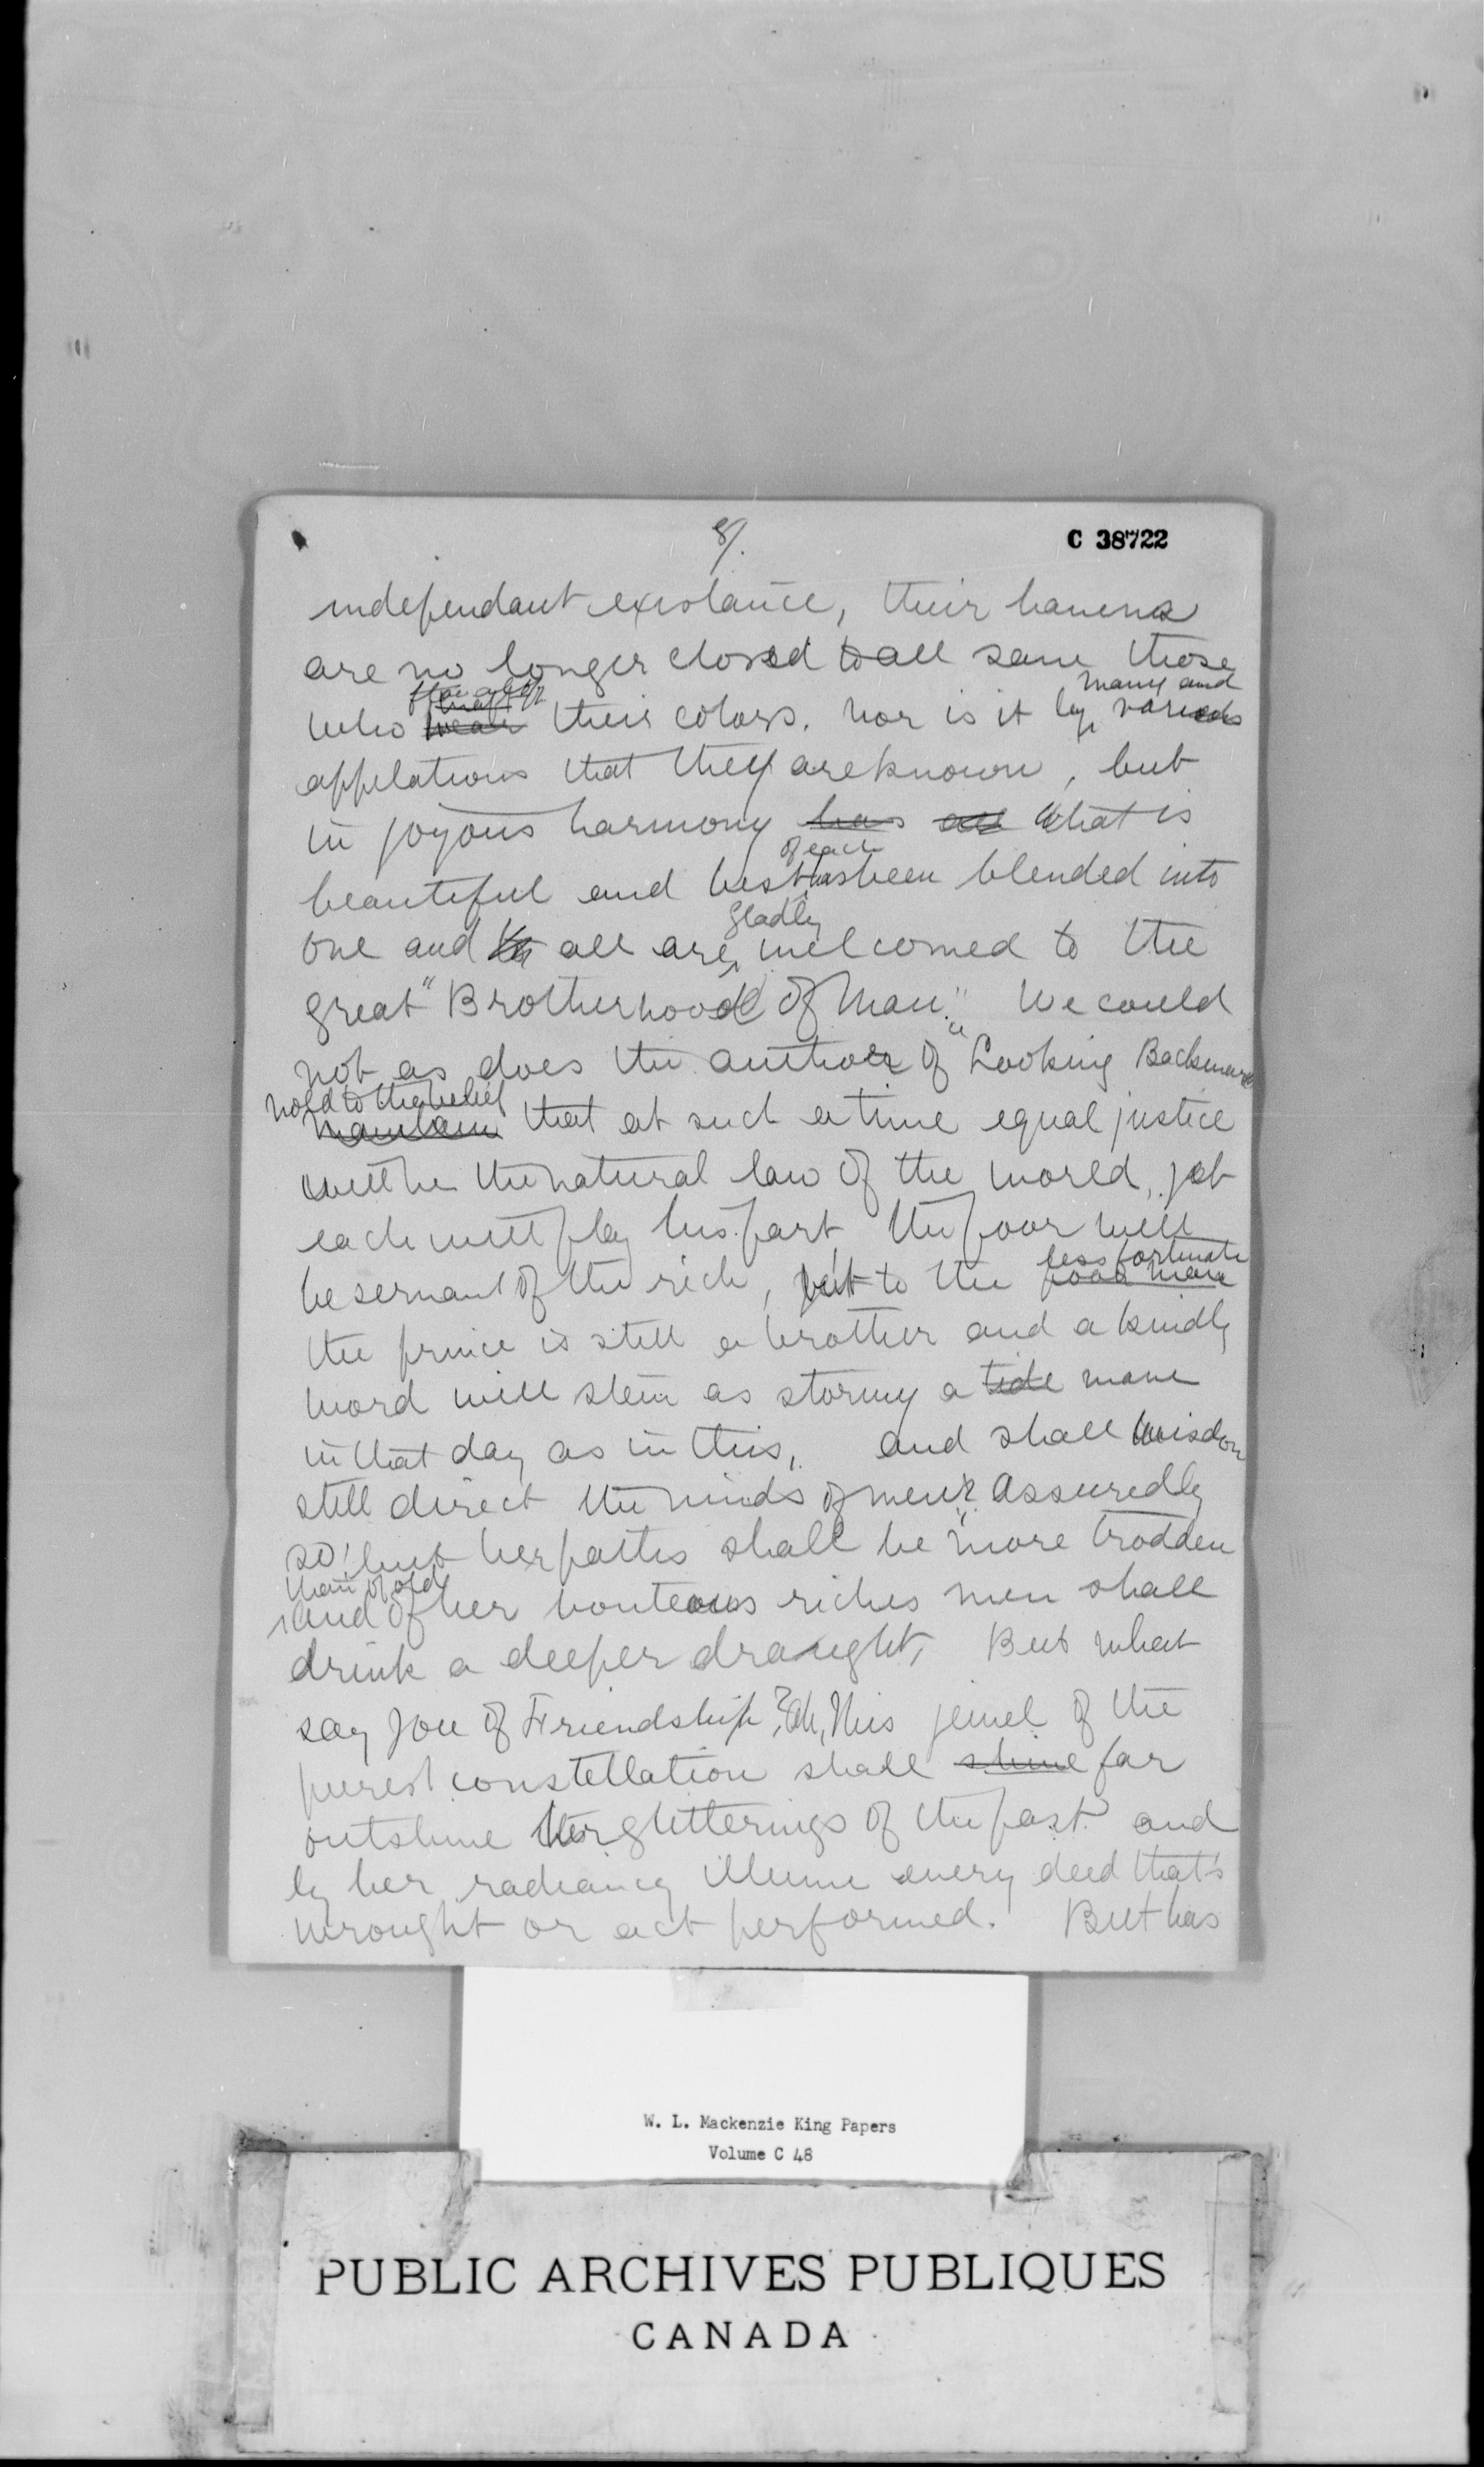 8/.
C 38722
independant existance, their havens
are no longer closed to all save those
many and
who wear their colors. Nor is it by varied
appelations that they are known, but
in joyous harmony has all what is
of each
beautiful and best has been blended into
gladly
one and all are welcomed to the
great "Brotherhood of Man." We could
not as does the author of "Looking Backward
hold to the belief
maintain that at such a time equal justice
will be the natural law of the world, yet
each will play his part, the poor will
less fortunate
be servant of the rich, but to the poor man
the prince is still a brother and a kindly
word will stem as stormy a tide wave
in that day as in this, and shall Wisdom
still direct the minds of men? Assuredly
so! but her paths shall be more trodden
than of old
and of her bounteous riches men shall
drink a deeper draught. But what
say you of Friendship? Ah, this jewel of the
purest constellation shall shine far
outshine her glitterings of the past and
by her radiancy illume every deed that's
wrought or act performed. But has
W. L. Mackenzie King Papers
Volume C 48
PUBLIC ARCHIVES PUBLIQUES
CANADA